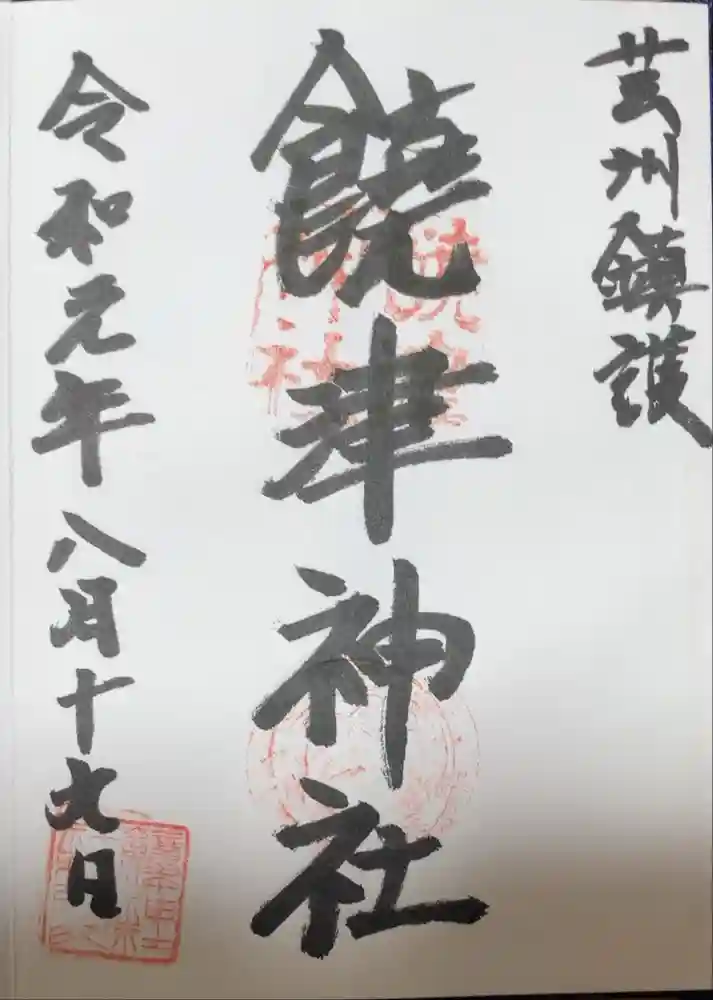 芸州鎮護
饒津神社
令和元年八月十六日